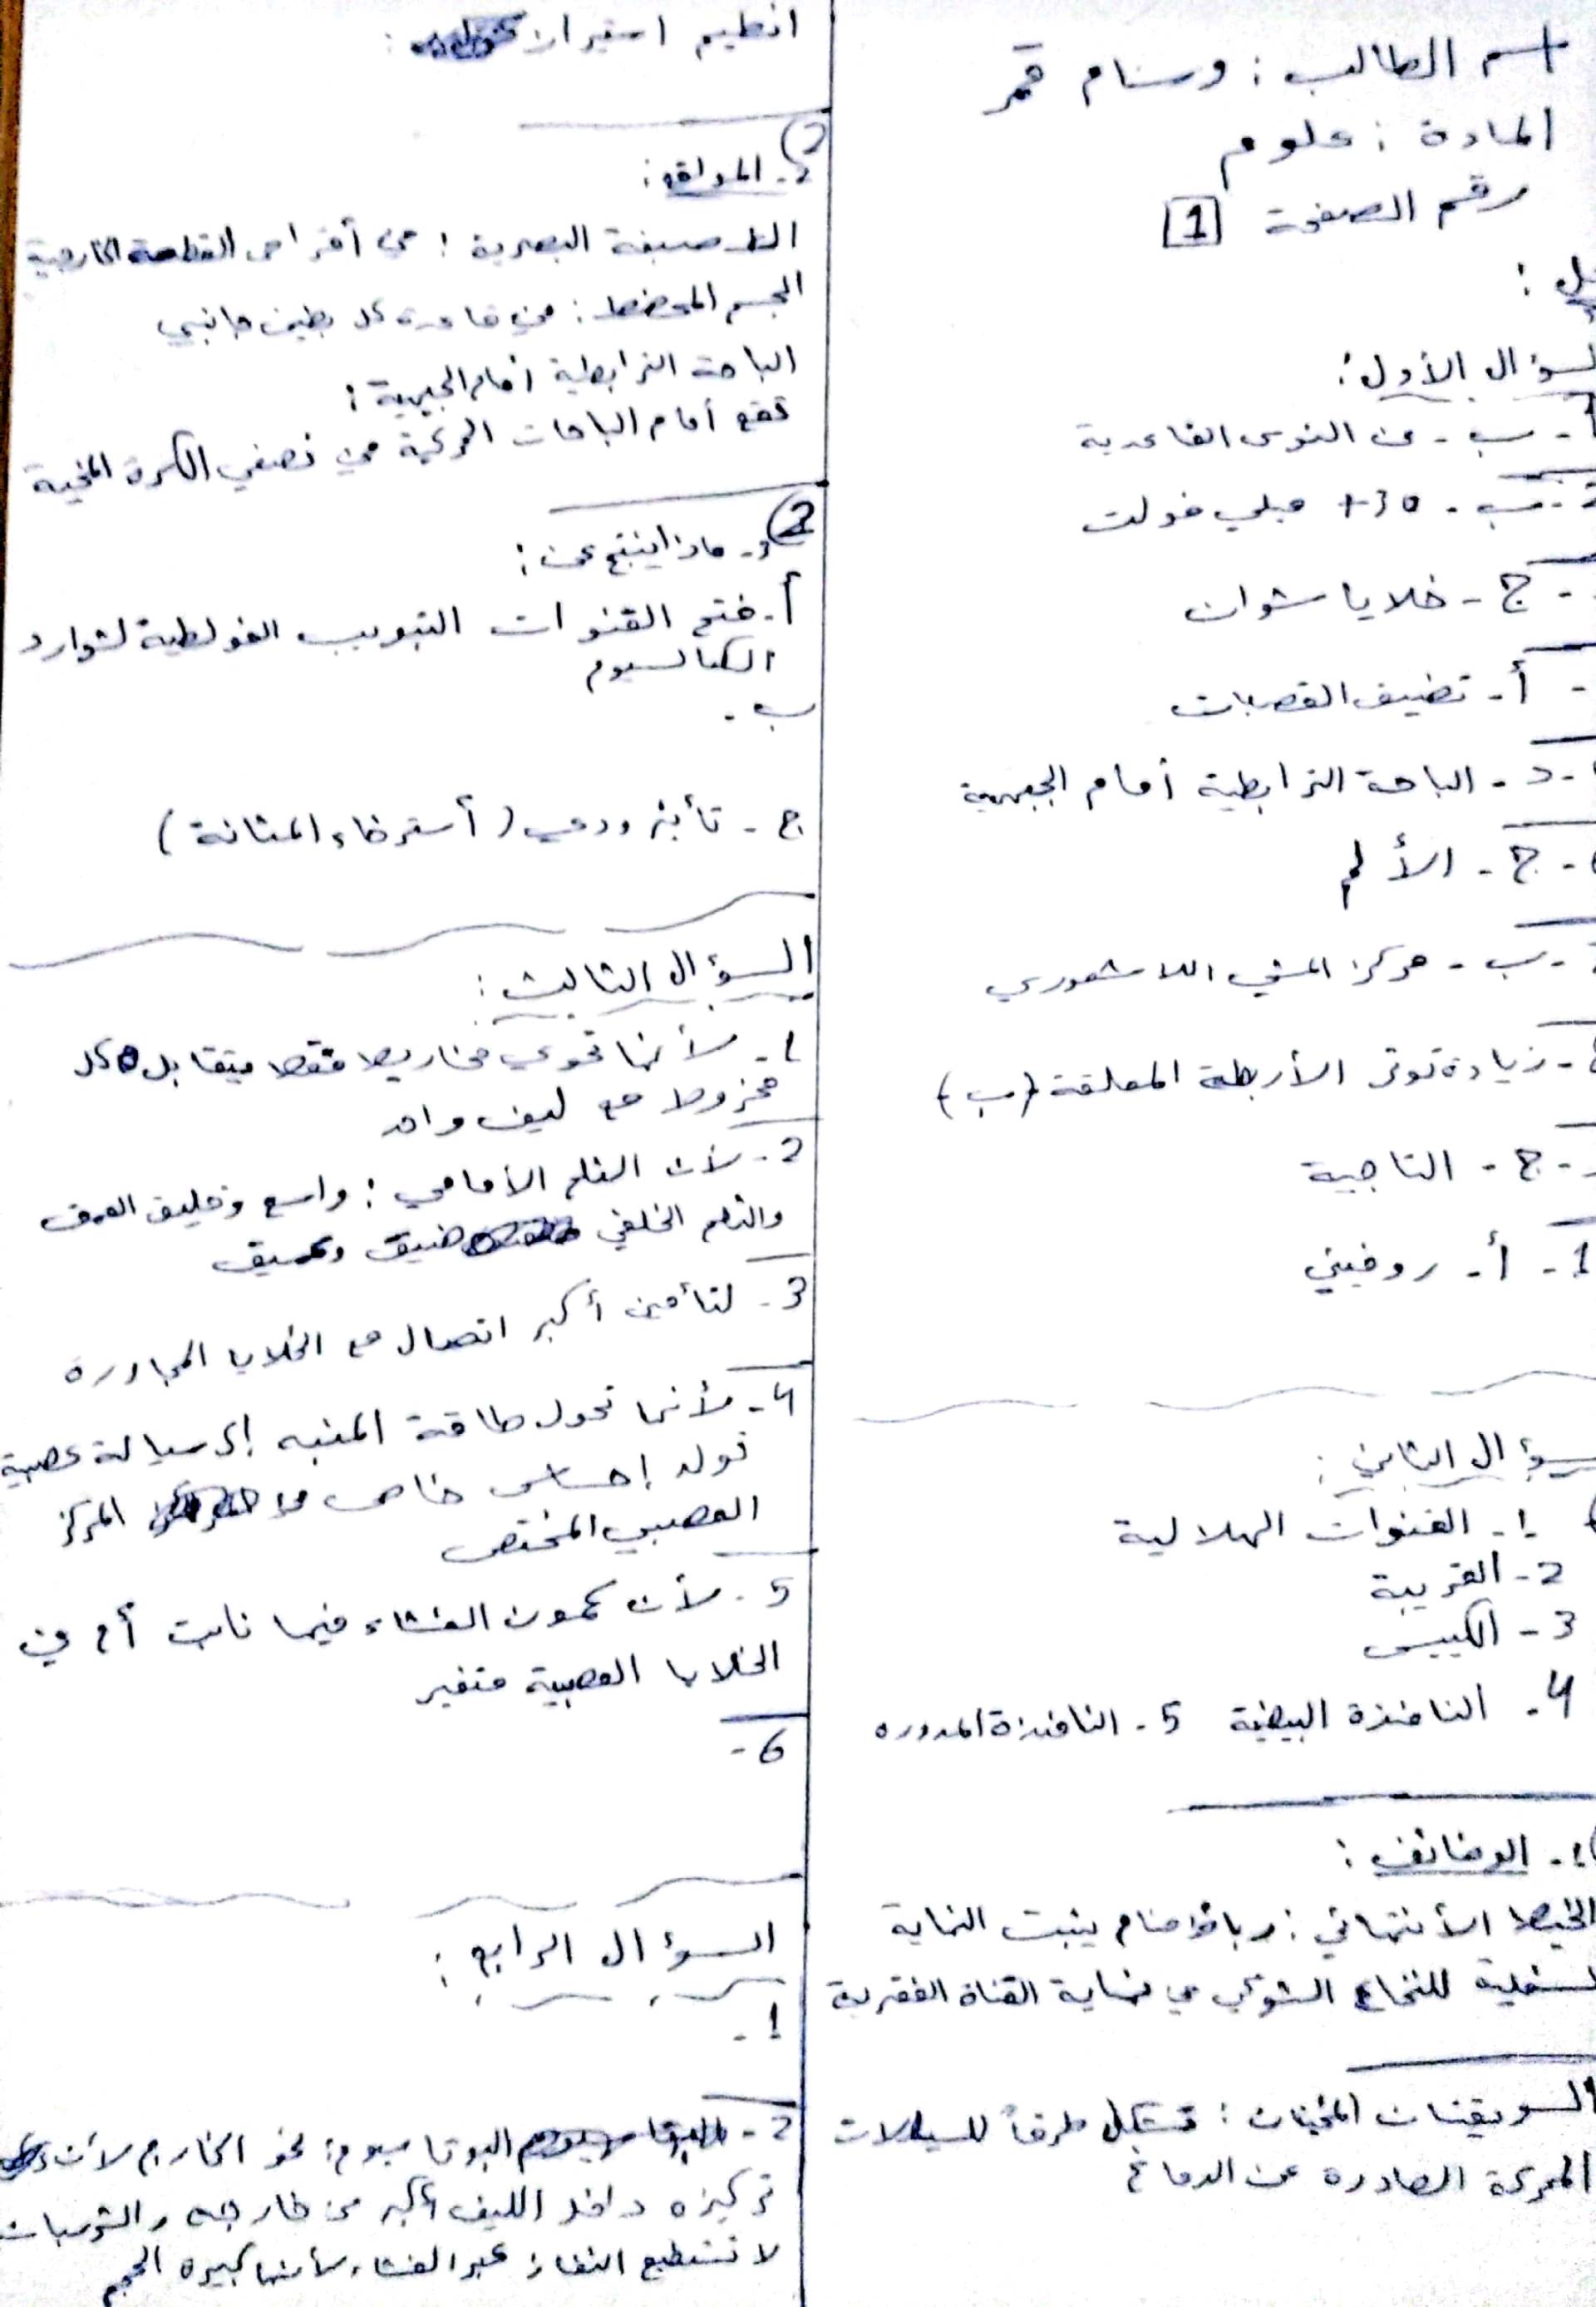 اسم الطالب : وسام قمر
المادة : علوم
رقم الصفحة 1
حل :
السؤال الأول :
1- ب - من النوى القاعدية
2- ب - +30 ميلي فولت
- ج - خلايا شوان
- أ - تضيف القصبات
- د - الباحة الترابطية أمام الجبهية
- ج - الألم
- ب - مركز المشي اللاشعوري
- زيادة توتر الأربطة المعلقة (ب)
- ج - التاجية
1 - أ - روفيني
السؤال الثاني :
1- القنوات الهلالية
2- القريبة
3- الكييس
4- النافذة البيضية 5- النافذة المدورة
1- الوظائف :
الخيط الأنتهائي : رباط ضام يثبت النهاية
السفلية للنخاع الشوكي في نهاية القناة الفقرية
السويقتان المخيتان : تشكل طرقاً للسيالات
المحركة الصادرة عن الدماغ
انظيم استيراز :
2- الموقع :
الط صبغة البصرية : في أقراص القطعة الخارجية
الجسم المخطط : في قاعدة كل بطين جانبي
الباحة الترابطية أمام الجبهية :
تقع أمام الباحات المحركة في نصفي الكرة المخية
2 3- ماذا ينتج عن :
أ- فتح القنوات التبويب الفولطية لشوارد
الكالسيوم
ب -
ج - تأثير ودي (أسترخاء المثانة)
السؤال الثالث :
1- لأنها تحوي مخاريط فقط يتقابل كل
مخروط مع ليف واحد
2- لأن الثلم الأمامي : واسع وقليل العمق
والثلم الخلفي ضيق وعميق
3- لتأمين أكبر اتصال مع الخلايا المجاورة
4- لأنها تحول طاقة المنبه إلى سيالة عصبية
تولد إحساس خاص في المركز
العصبي المختص
5- لأن كمون الغشاء فيها ثابت أم في
الخلايا العصبية متغير
6-
السؤال الرابع :
1-
2- البوتاسيوم : نحو الخارج لأن
تركيزه داخل الليف أكبر من خارجه والشرسبات
لا تستطيع النفاذ عبر الغشاء لأنها كبيرة الحجم